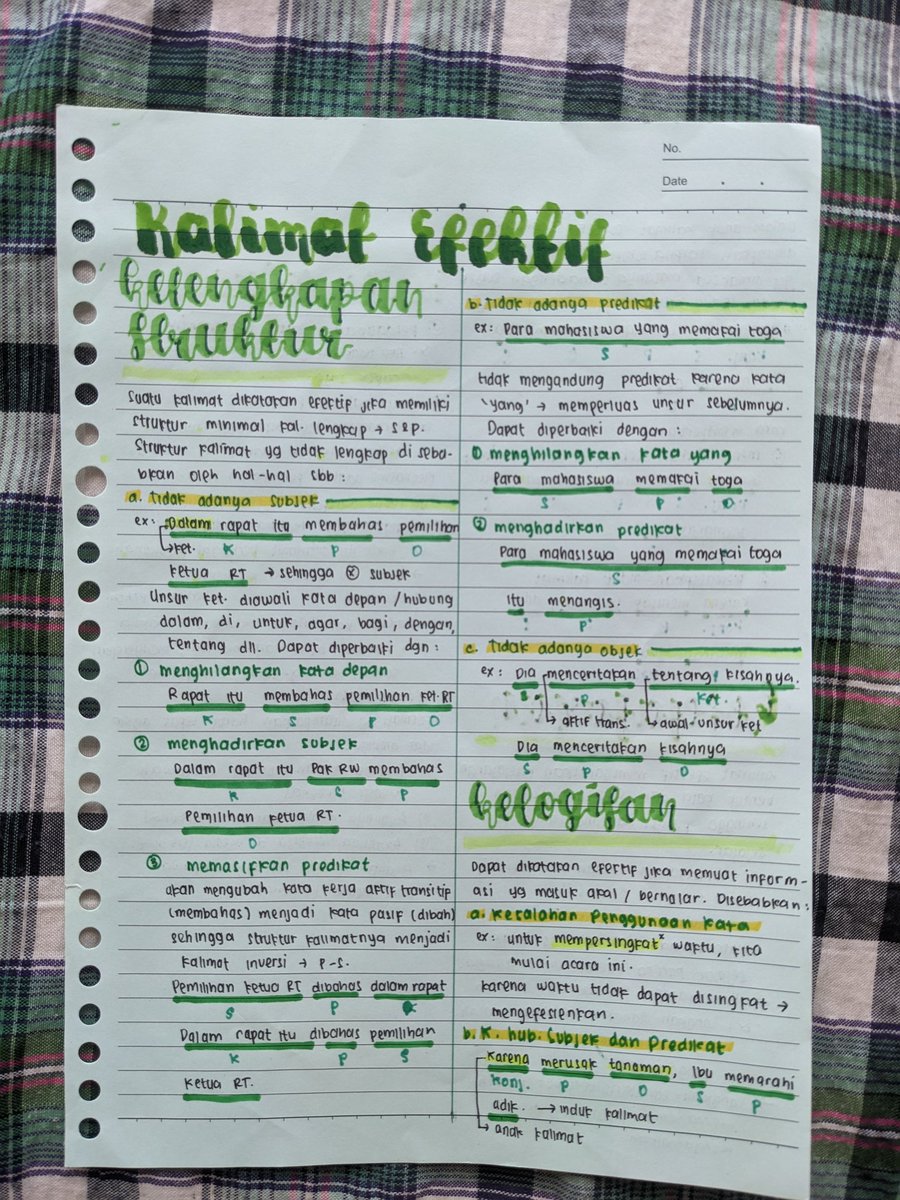 No.
Date . .
Kalimat Efektif
kelengkapan
struktur
Suatu kalimat dikatakan efektif jika memiliki
struktur minimal kal. lengkap → S&P.
Struktur kalimat yg tidak lengkap di seba-
bkan oleh hal-hal sbb :
a. tidak adanya subjek
ex: Dalam rapat itu membahas pemilihan
↳ket. K P O
ketua RT → sehingga ⓧ subjek
Unsur ket. diawali kata depan / hubung
dalam, di, untuk, agar, bagi, dengan,
tentang dll. Dapat diperbaiki dgn :
① menghilangkan kata depan
Rapat itu membahas pemilihan ket. RT
K S P O
② menghadirkan subjek
Dalam rapat itu Pak RW membahas
K S P
Pemilihan ketua RT.
O
③ memasifkan predikat
akan mengubah kata kerja aktif transitip
(membahas) menjadi kata pasif (dibah)
sehingga struktur kalimatnya menjadi
kalimat inversi → P-S.
Pemilihan ketua RT dibahas dalam rapat
S P K
Dalam rapat itu dibahas pemilihan
K P S
Ketua RT.
b. tidak adanya predikat
ex: Para mahasiswa yang memakai toga
S
tidak mengandung predikat karena kata
'yang' → memperluas unsur sebelumnya.
Dapat diperbaiki dengan :
① menghilangkan kata yang
Para mahasiswa memakai toga
S P O
② menghadirkan predikat
Para mahasiswa yang memakai toga
S
itu menangis.
P
c. tidak adanya objek
ex: Dia menceritakan tentang kisahnya.
S P Ket.
↳ aktif trans. ↳ awal-unsur ket
Dia menceritakan kisahnya
S P O
kelogisan
Dapat dikatakan efektif jika memuat inform-
asi yg masuk akal / bernalar. Disebabkan :
a. kesalahan Penggunaan kata
ex: untuk mempersingkat* waktu, kita
mulai acara ini.
karena waktu tidak dapat disingkat →
mengefesienkan.
b. K. hub. Subjek dan Predikat
Karena merusak tanaman, Ibu memarahi
konj. P O S P
adik. → induk kalimat
↳ anak kalimat